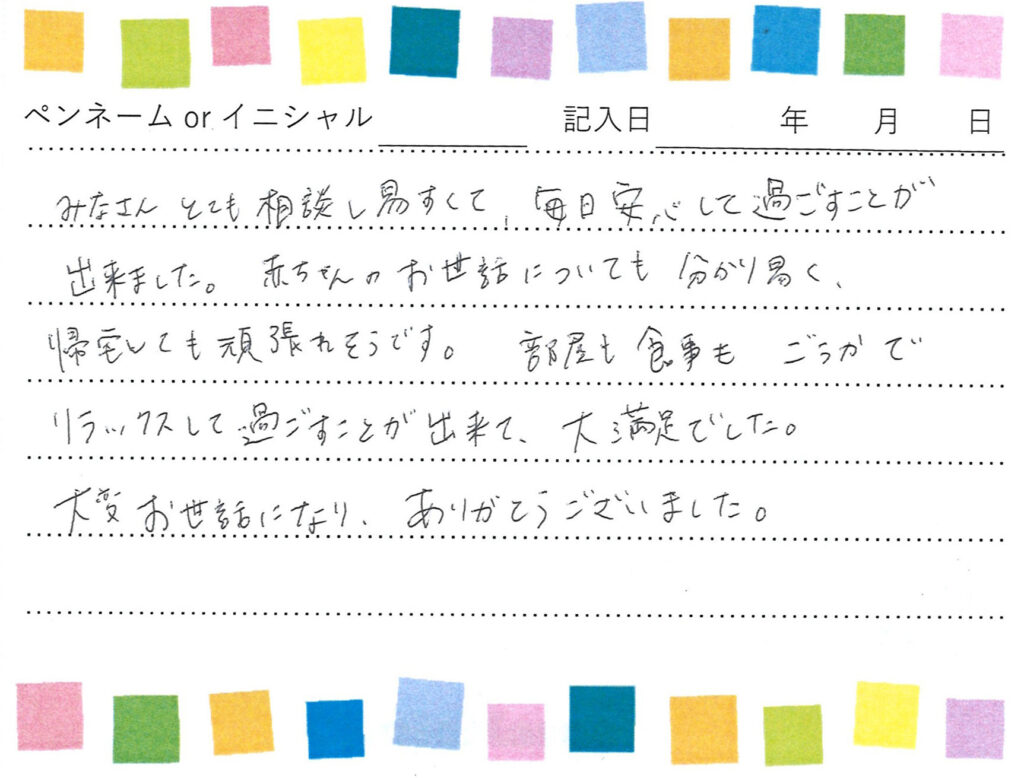 ペンネーム or イニシャル 記入日 年 月 日
みなさん とても 相談し易すくて、毎日安心して過ごすことが
出来ました。 赤ちゃんの お世話についても 分かり易く、
帰宅しても頑張れそうです。 部屋も食事も ごうかで
リラックスして過ごすことが出来て、大満足でした。
大変お世話になり、ありがとうございました。